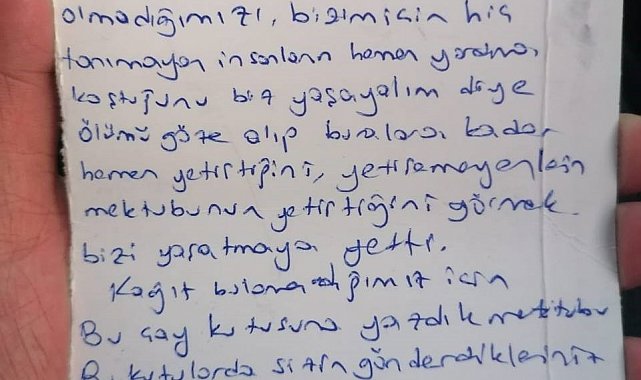 olmadığımızı, bizim için hiç
tanımayan insanların hemen yardıma
koştuğunu biz yaşayalım diye
ölümü göze alıp buralara kadar
hemen yetiştiğini, yetişemeyenlerin
mektubunun yetiştiğini görmek
bizi yaşatmaya yetti.
Kağıt bulamadığımız için
Bu çay kutusuna yazdık mektubu
Bu kutularda sizin gönderdikleriniz